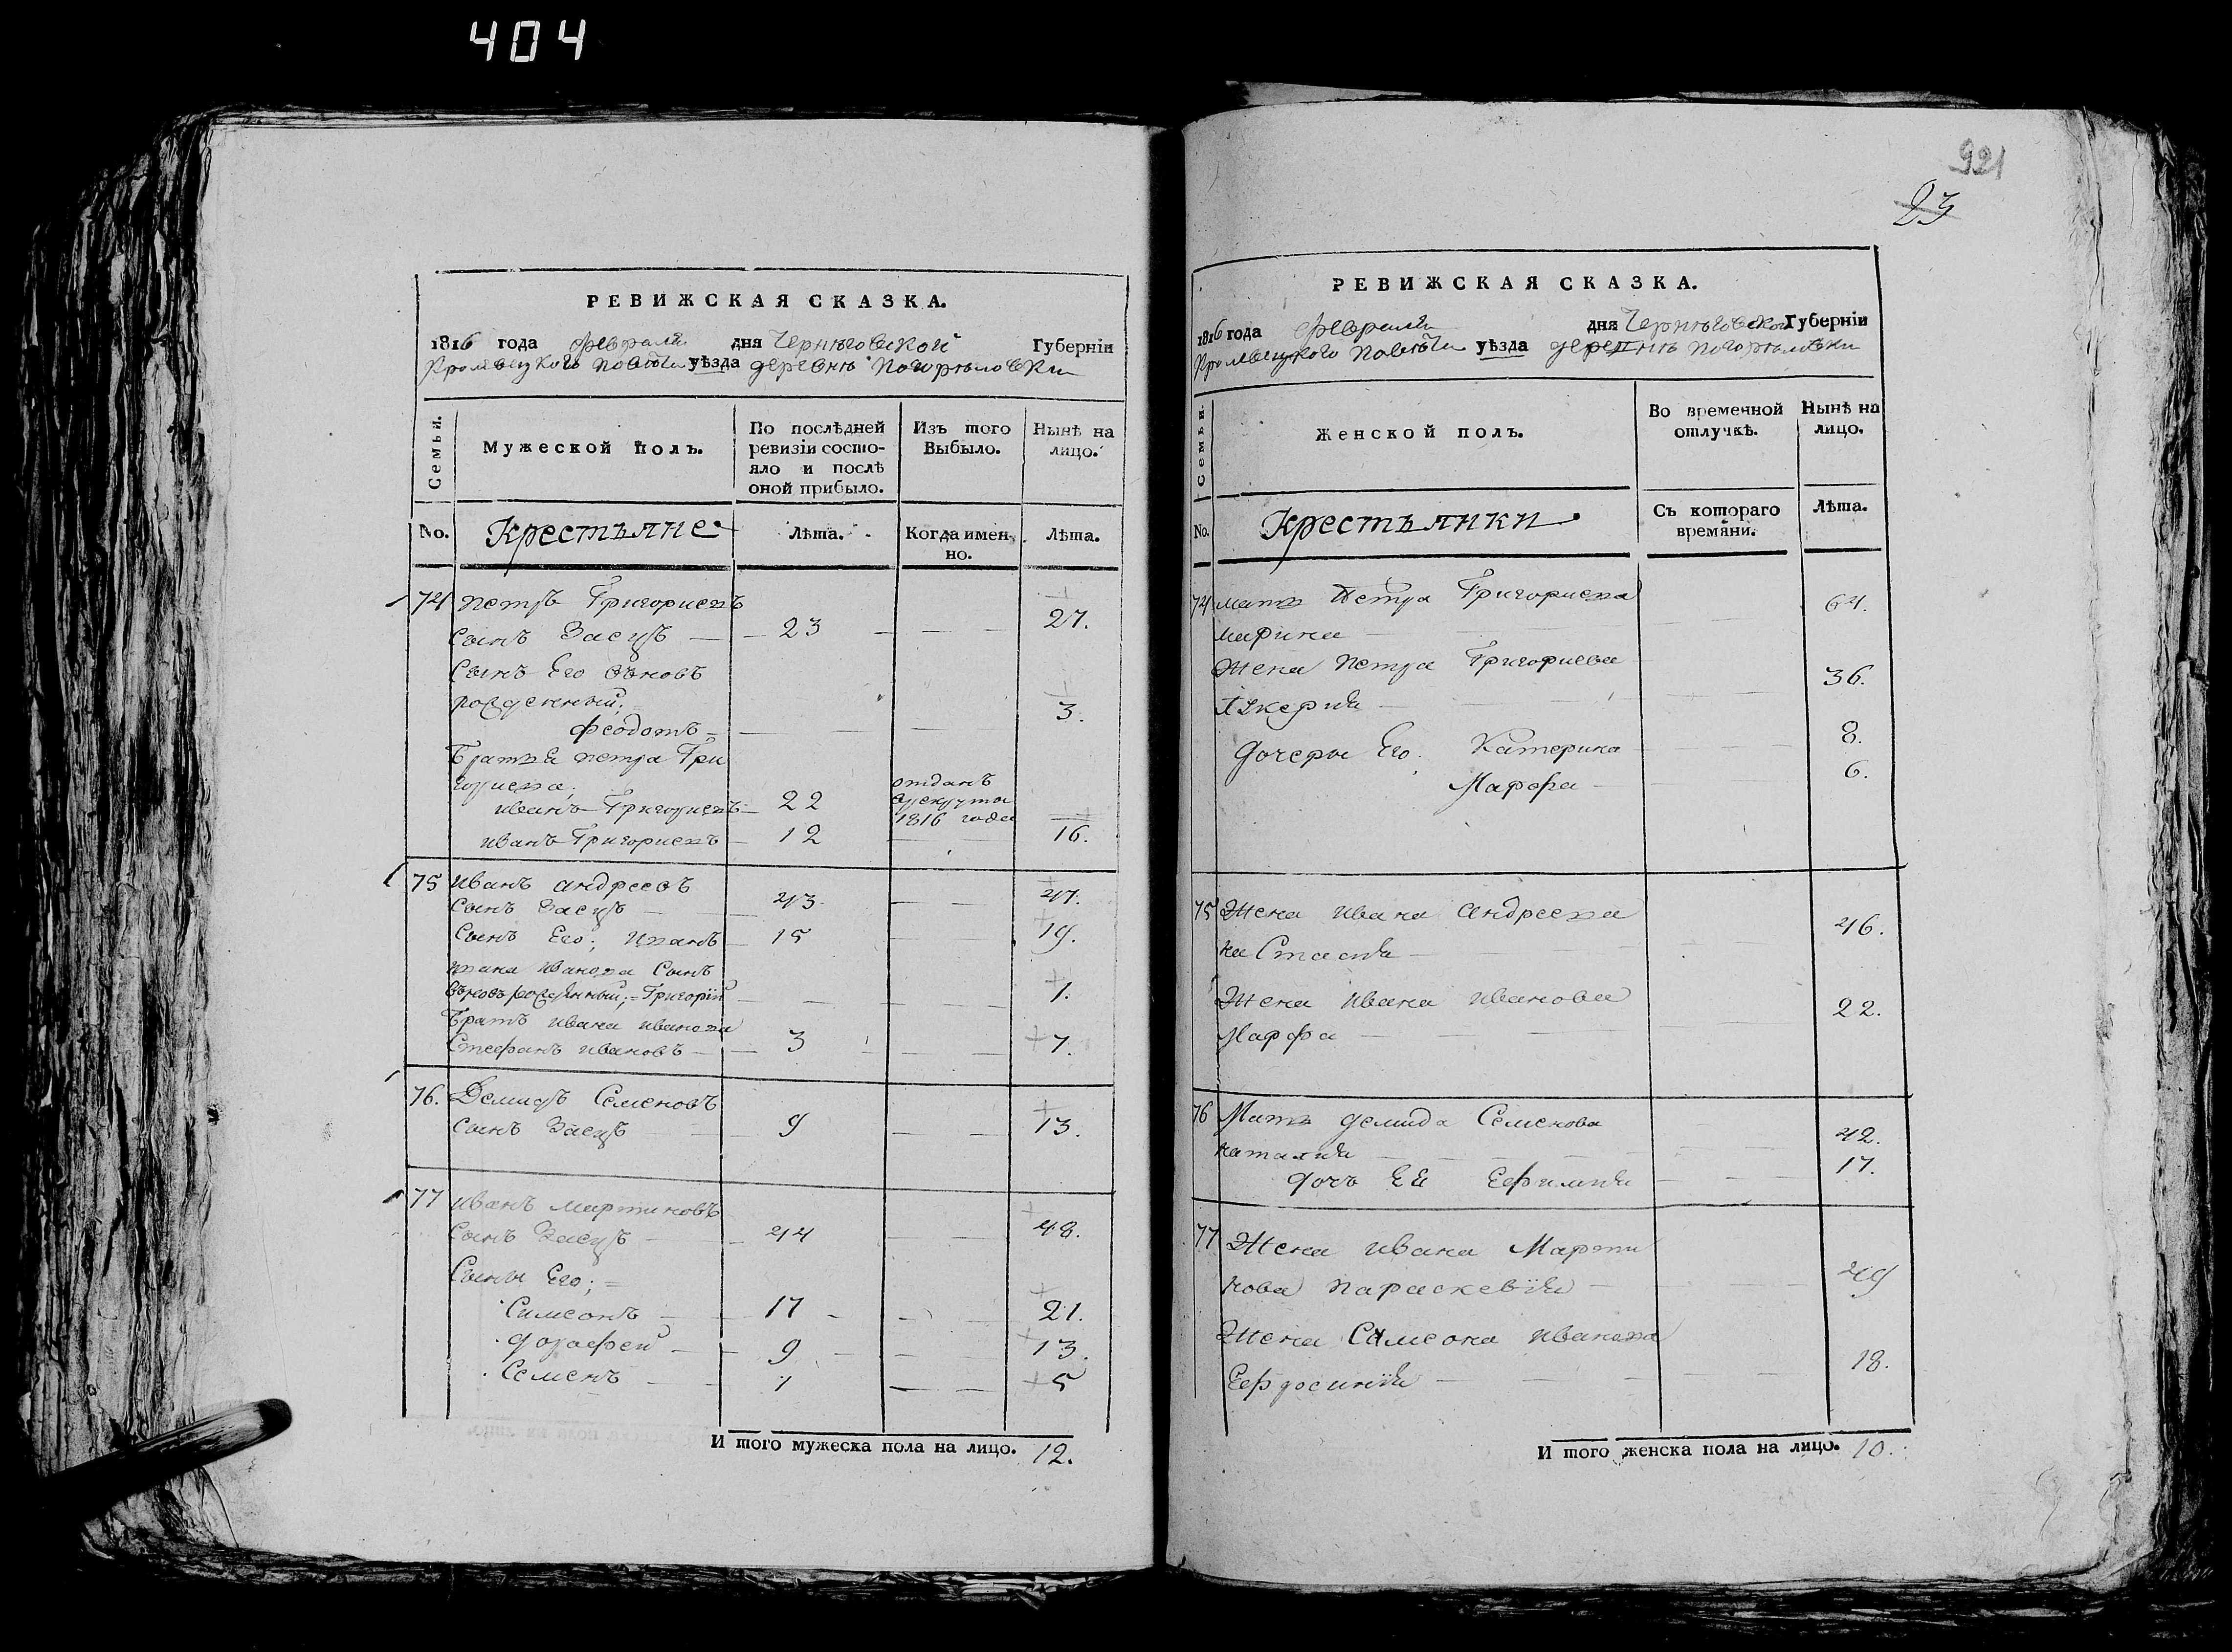 404
РЕВИЖСКАЯ СКАЗКА.
1816 года февраля дня Черниговской Губерніи
Кролевецкого повѣта уѣзда деревнѣ Погорѣловки
Семьи.
Мужеской полъ.
По послѣдней ревизіи состояло и послѣ оной прибыло.
Изъ того Выбыло.
Нынѣ на лицо.
No. Крестьяне Лѣта. Когда именно. Лѣта.
74 Петръ Григориевъ
сынъ Заецъ 23 27.
Сынъ Его вновъ
рожденный;
Феодотъ 3.
Братья Петра Гри
гориева;
Иванъ Григориевъ 22 отданъ в рекруты 1816 года
Иванъ Григориевъ 12 16.
75 Иванъ Андреевъ
сынъ Заецъ 43 47.
Сынъ Его; Иванъ 15 19.
Ивана Иванова Сынъ
вновь рожденный; Григорій 1.
Братъ Ивана Иванова
Стефанъ Ивановъ 3 7.
76. Демидъ Семеновъ
сынъ Заецъ 9 13.
77 Иванъ Мартиновъ
сынъ Заецъ 44 48.
Сыны Его;
Самсонъ 17 21.
Дорофей 9 13.
Семенъ 1 5
И того мужеска пола на лицо. 12.
921
23
РЕВИЖСКАЯ СКАЗКА.
1816 года февраля дня Черниговской Губерніи
Кролевецкого повѣта уѣзда деревнѣ Погорѣловки
Семьи.
Женской полъ.
Во временной отлучкѣ.
Нынѣ на лицо.
No. Крестьянки Съ котораго времяни. Лѣта.
74 мать Петра Григориева
марина 64.
Жена Петра Григориева
36.
Дочеры Его: Катерина 8.
Марфа 6.
75 Жена Ивана Андреева
наСтасия 46.
Жена Ивана Иванова
Марфа 22.
76 Мать Демида Семенова
наталия 42.
дочъ Ея Ефимия 17.
77 Жена Ивана Марти
нова Параскевія 49
Жена Самсона Иванова
Ефросинія 18.
И того женска пола на лицо. 10.